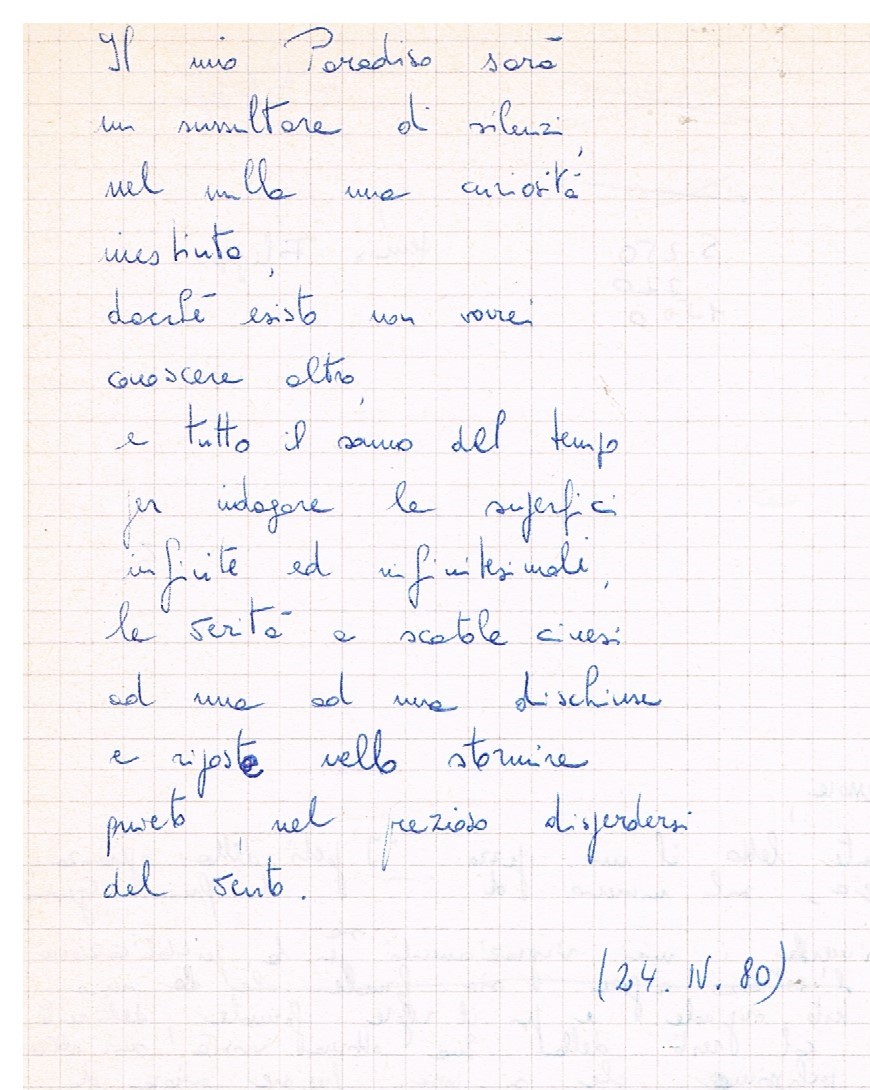 Il mio Paradiso sarà
un sussultare di silenzi,
nel nulla una curiosità
inestinta,
dacché esisto non vorrei
conoscere altro,
e tutto il sonno del tempo
per indagare le superfici
infinite ed infinitesimali,
le verità a scatole cinesi
ad una ad una dischiuse
e riposte nello stormire
quieto, nel prezioso disperdersi
del vento.
(24. IV. 80)